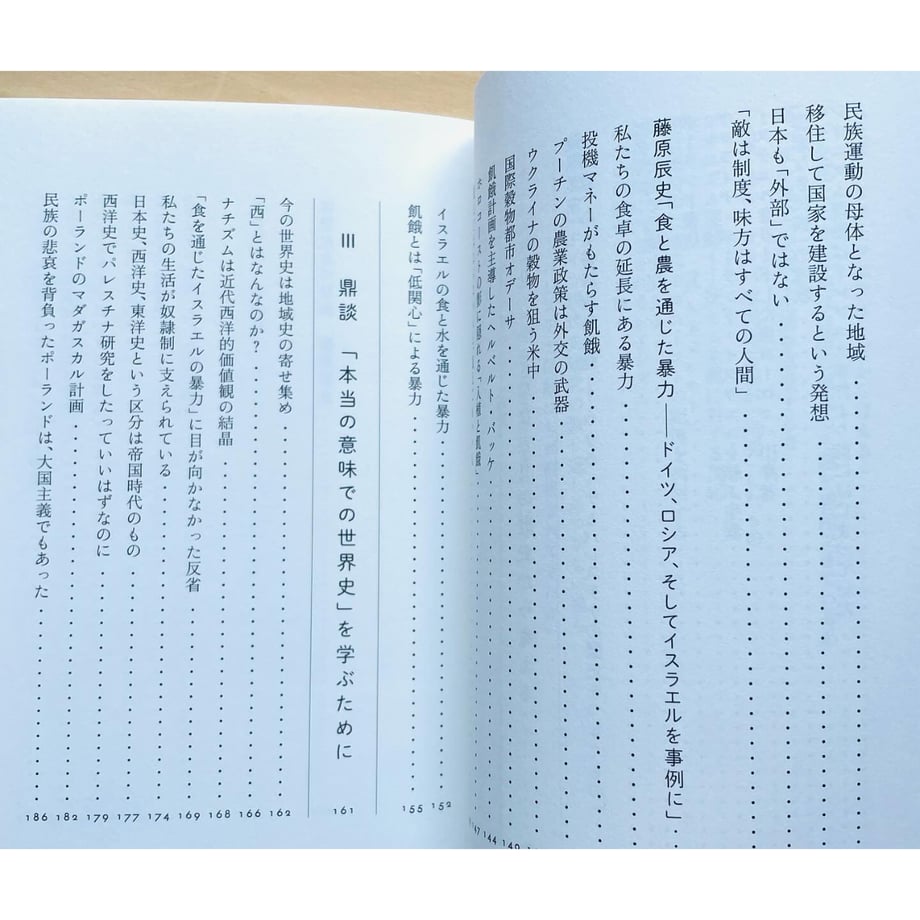 民族運動の母体となった地域
移住して国家を建設するという発想
日本も「外部」ではない
「敵は制度、味方はすべての人間」
藤原辰史「食と農を通じた暴力――ドイツ、ロシア、そしてイスラエルを事例に」
私たちの食卓の延長にある暴力
投機マネーがもたらす飢餓
プーチンの農業政策は外交の武器
ウクライナの穀物を狙う米中
国際穀物都市オデーサ 140
飢餓計画を主導したヘルベルト・バッケ 144
ホロコーストの影に隠れる「入植と飢餓」
イスラエルの食と水を通じた暴力 152
飢餓とは「低関心」による暴力 155
Ⅲ 鼎談 「本当の意味での世界史」を学ぶために 161
今の世界史は地域史の寄せ集め 162
「西」とはなんなのか? 166
ナチズムは近代西洋的価値観の結晶 168
「食を通じたイスラエルの暴力」に目が向かなかった反省 169
私たちの生活が奴隷制に支えられている 174
日本史、西洋史、東洋史という区分は帝国時代のもの 177
西洋史でパレスチナ研究をしたっていいはずなのに 179
ポーランドのマダガスカル計画 182
民族の悲哀を背負ったポーランドは、大国主義でもあった 186